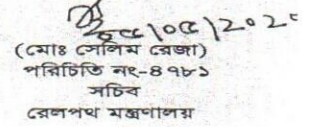 (মোঃ সেলিম রেজা)
পরিচিতি নং-৪৭৮১
সচিব
রেলপথ মন্ত্রণালয়